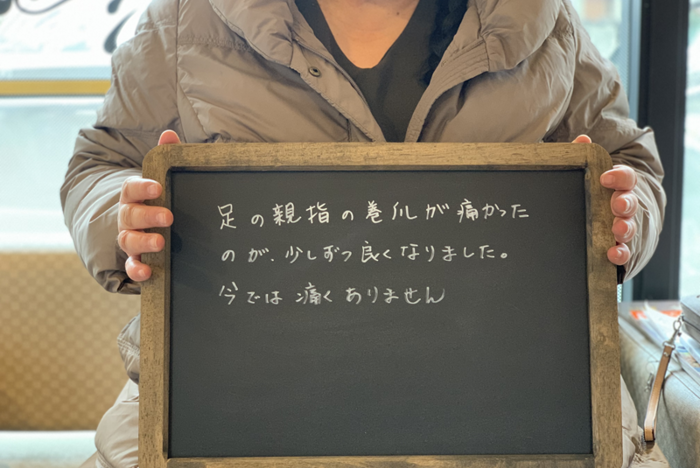 足の親指の巻爪が痛かった
のが、少しずつ良くなりました。
今では痛くありません